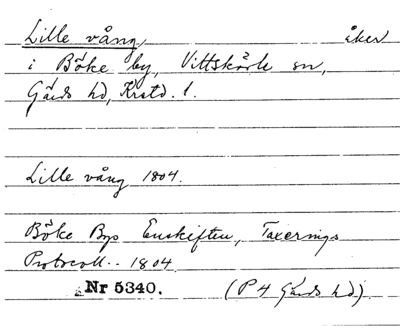 Lille vång åker
i Böke by, Vittskövle sn,
Gärds hd, Krstd. l.
Lille vång 1804.
Böke Bys Enskiften, Taxerings
Protocoll.. 1804
Nr 5340. (P 4 Gärds hd).